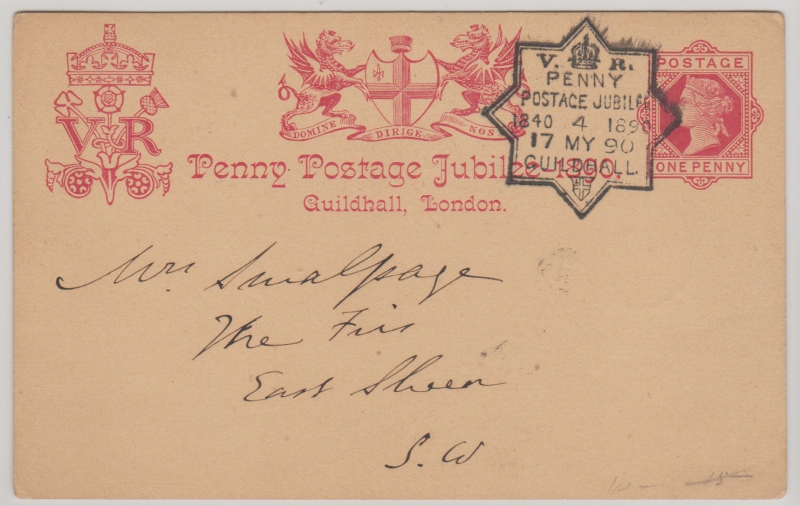 V R
DOMINE DIRIGE NOS
Penny Postage Jubilee 1890.
Guildhall, London.
V. R.
PENNY
POSTAGE JUBILEE
1840 4 1890
17 MY 90
GUILDHALL.
POSTAGE
ONE PENNY
Mrs Smalpage
The Firs
East Sheen
S.W